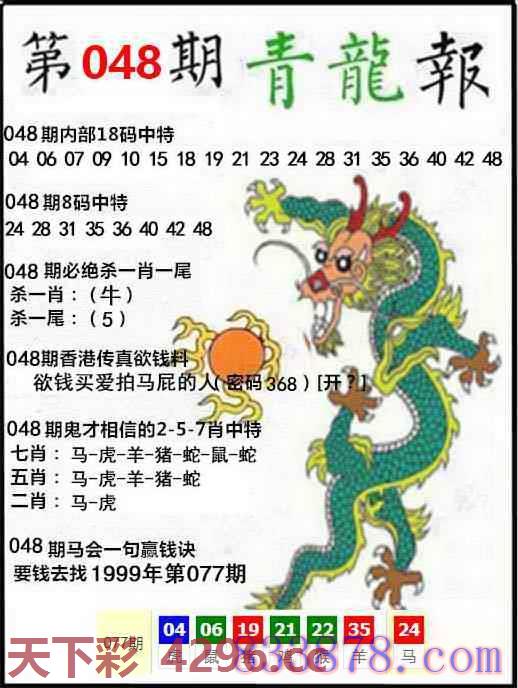 第048期 青龍報
048期内部18码中特
04 06 07 09 10 15 18 19 21 23 24 28 31 35 36 40 42 48
048期8码中特
24 28 31 35 36 40 42 48
048 期必绝杀一肖一尾
杀一肖：（牛）
杀一尾：（5）
048期香港传真欲钱料
欲钱买爱拍马屁的人(密码368)[开?]
048期鬼才相信的2-5-7肖中特
七肖：马-虎-羊-猪-蛇-鼠-蛇
五肖：马-虎-羊-猪-蛇
二肖：马-虎
048期马会一句赢钱诀
要钱去找1999年第077期
077期 04 06 19 21 22 35 24
虎 鼠 猪 鸡 猴 羊 马
天下彩 4296.cc